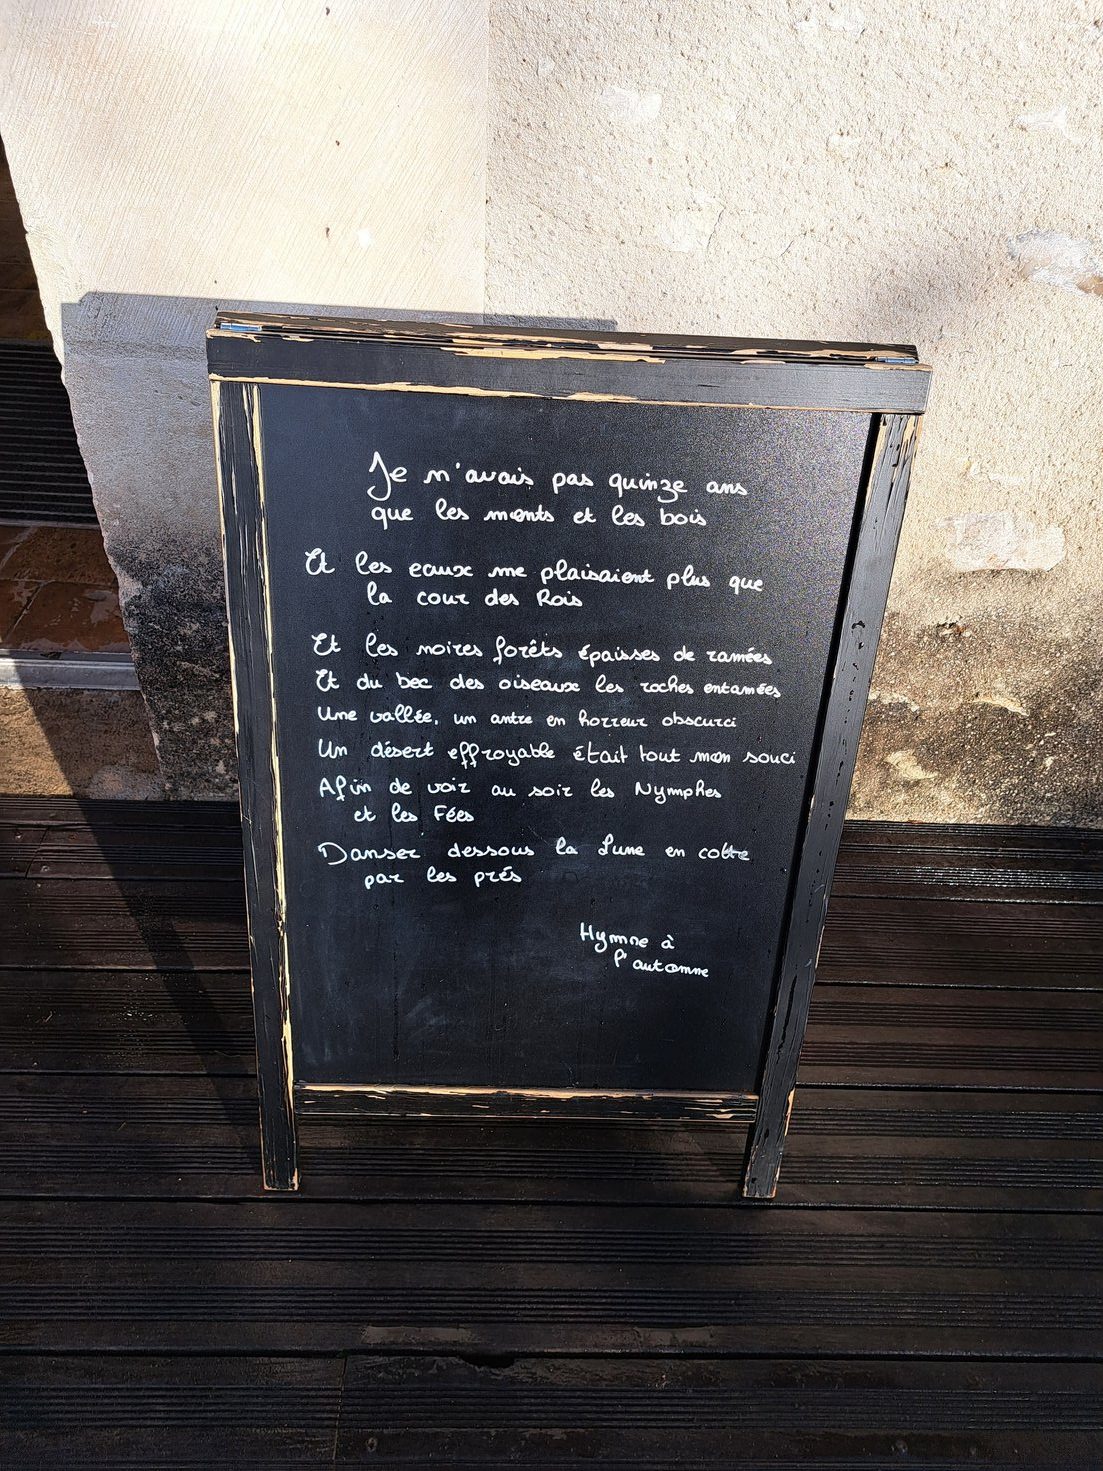 Je n'avais pas quinze ans
que les monts et les bois
Et les eaux me plaisaient plus que
la cour des Rois
Et les noires forêts épaisses de ramées
Et du bec des oiseaux les roches entamées
Une vallée, un antre en horreur obscurci
Un désert effroyable était tout mon souci
Afin de voir au soir les Nymphes
et les Fées
Danser dessous la Lune en cotte
par les prés
Hymne à
l'automne